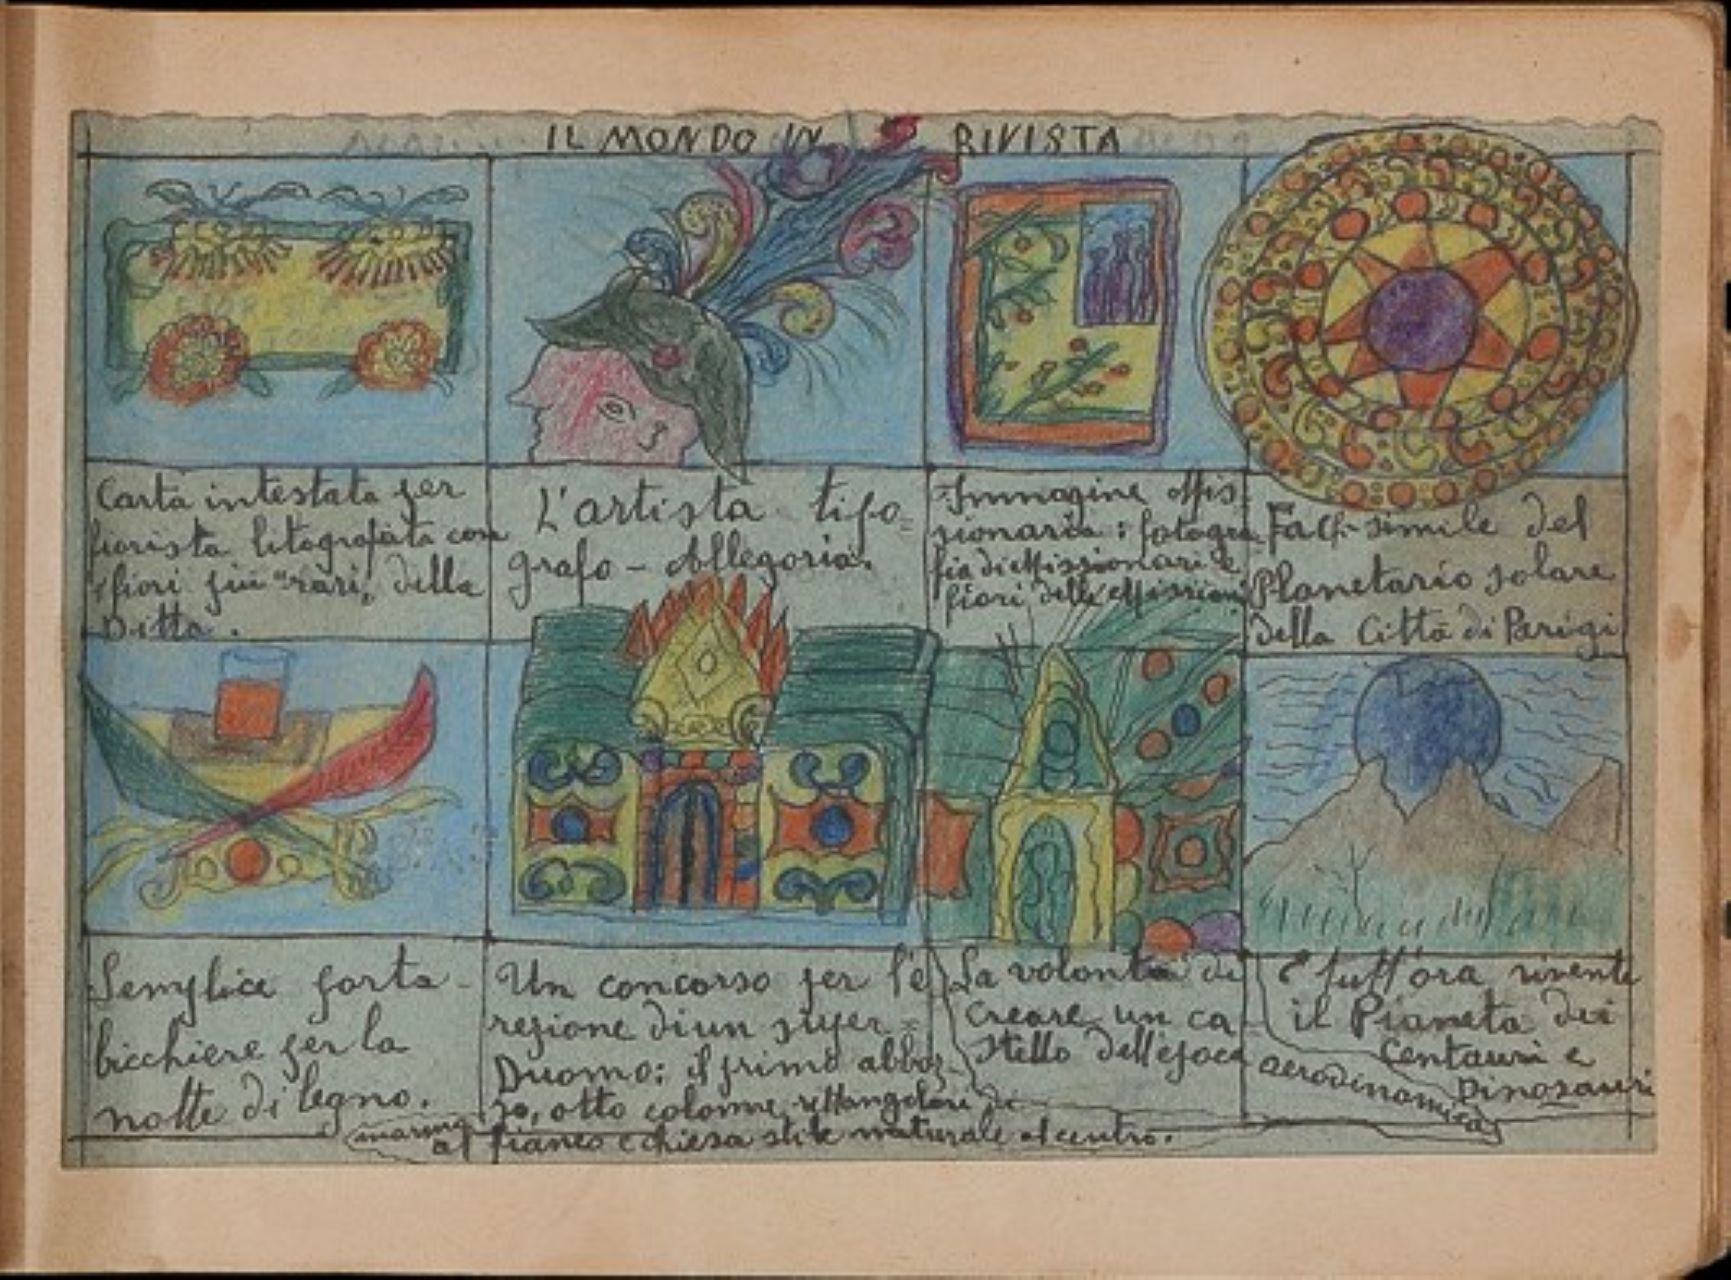 IL MONDO IN RIVISTA
FIORISTA
Carta intestata per
fiorista litografata con
i fiori più "rari" della
Ditta.
L'artista tipo=
grafo - Allegoria.
Immagine Missio
sionaria: fotogra
fia di Missionari e
fiori delle Missioni
Fac-simile del
Planetario solare
della Città di Parigi
Semplice porta-
bicchiere per la
notte di legno.
Un concorso per l'e
rezione di un super=
Duomo: il primo abboz-
zo, otto colonne rettangolari di
marmo
a fianco e chiesa stile naturale al centro.
La volontà di
creare un ca
stello dell'epoca
aerodinamica
È tutt'ora vivente
il Pianeta dei
Centauri e
Dinosauri